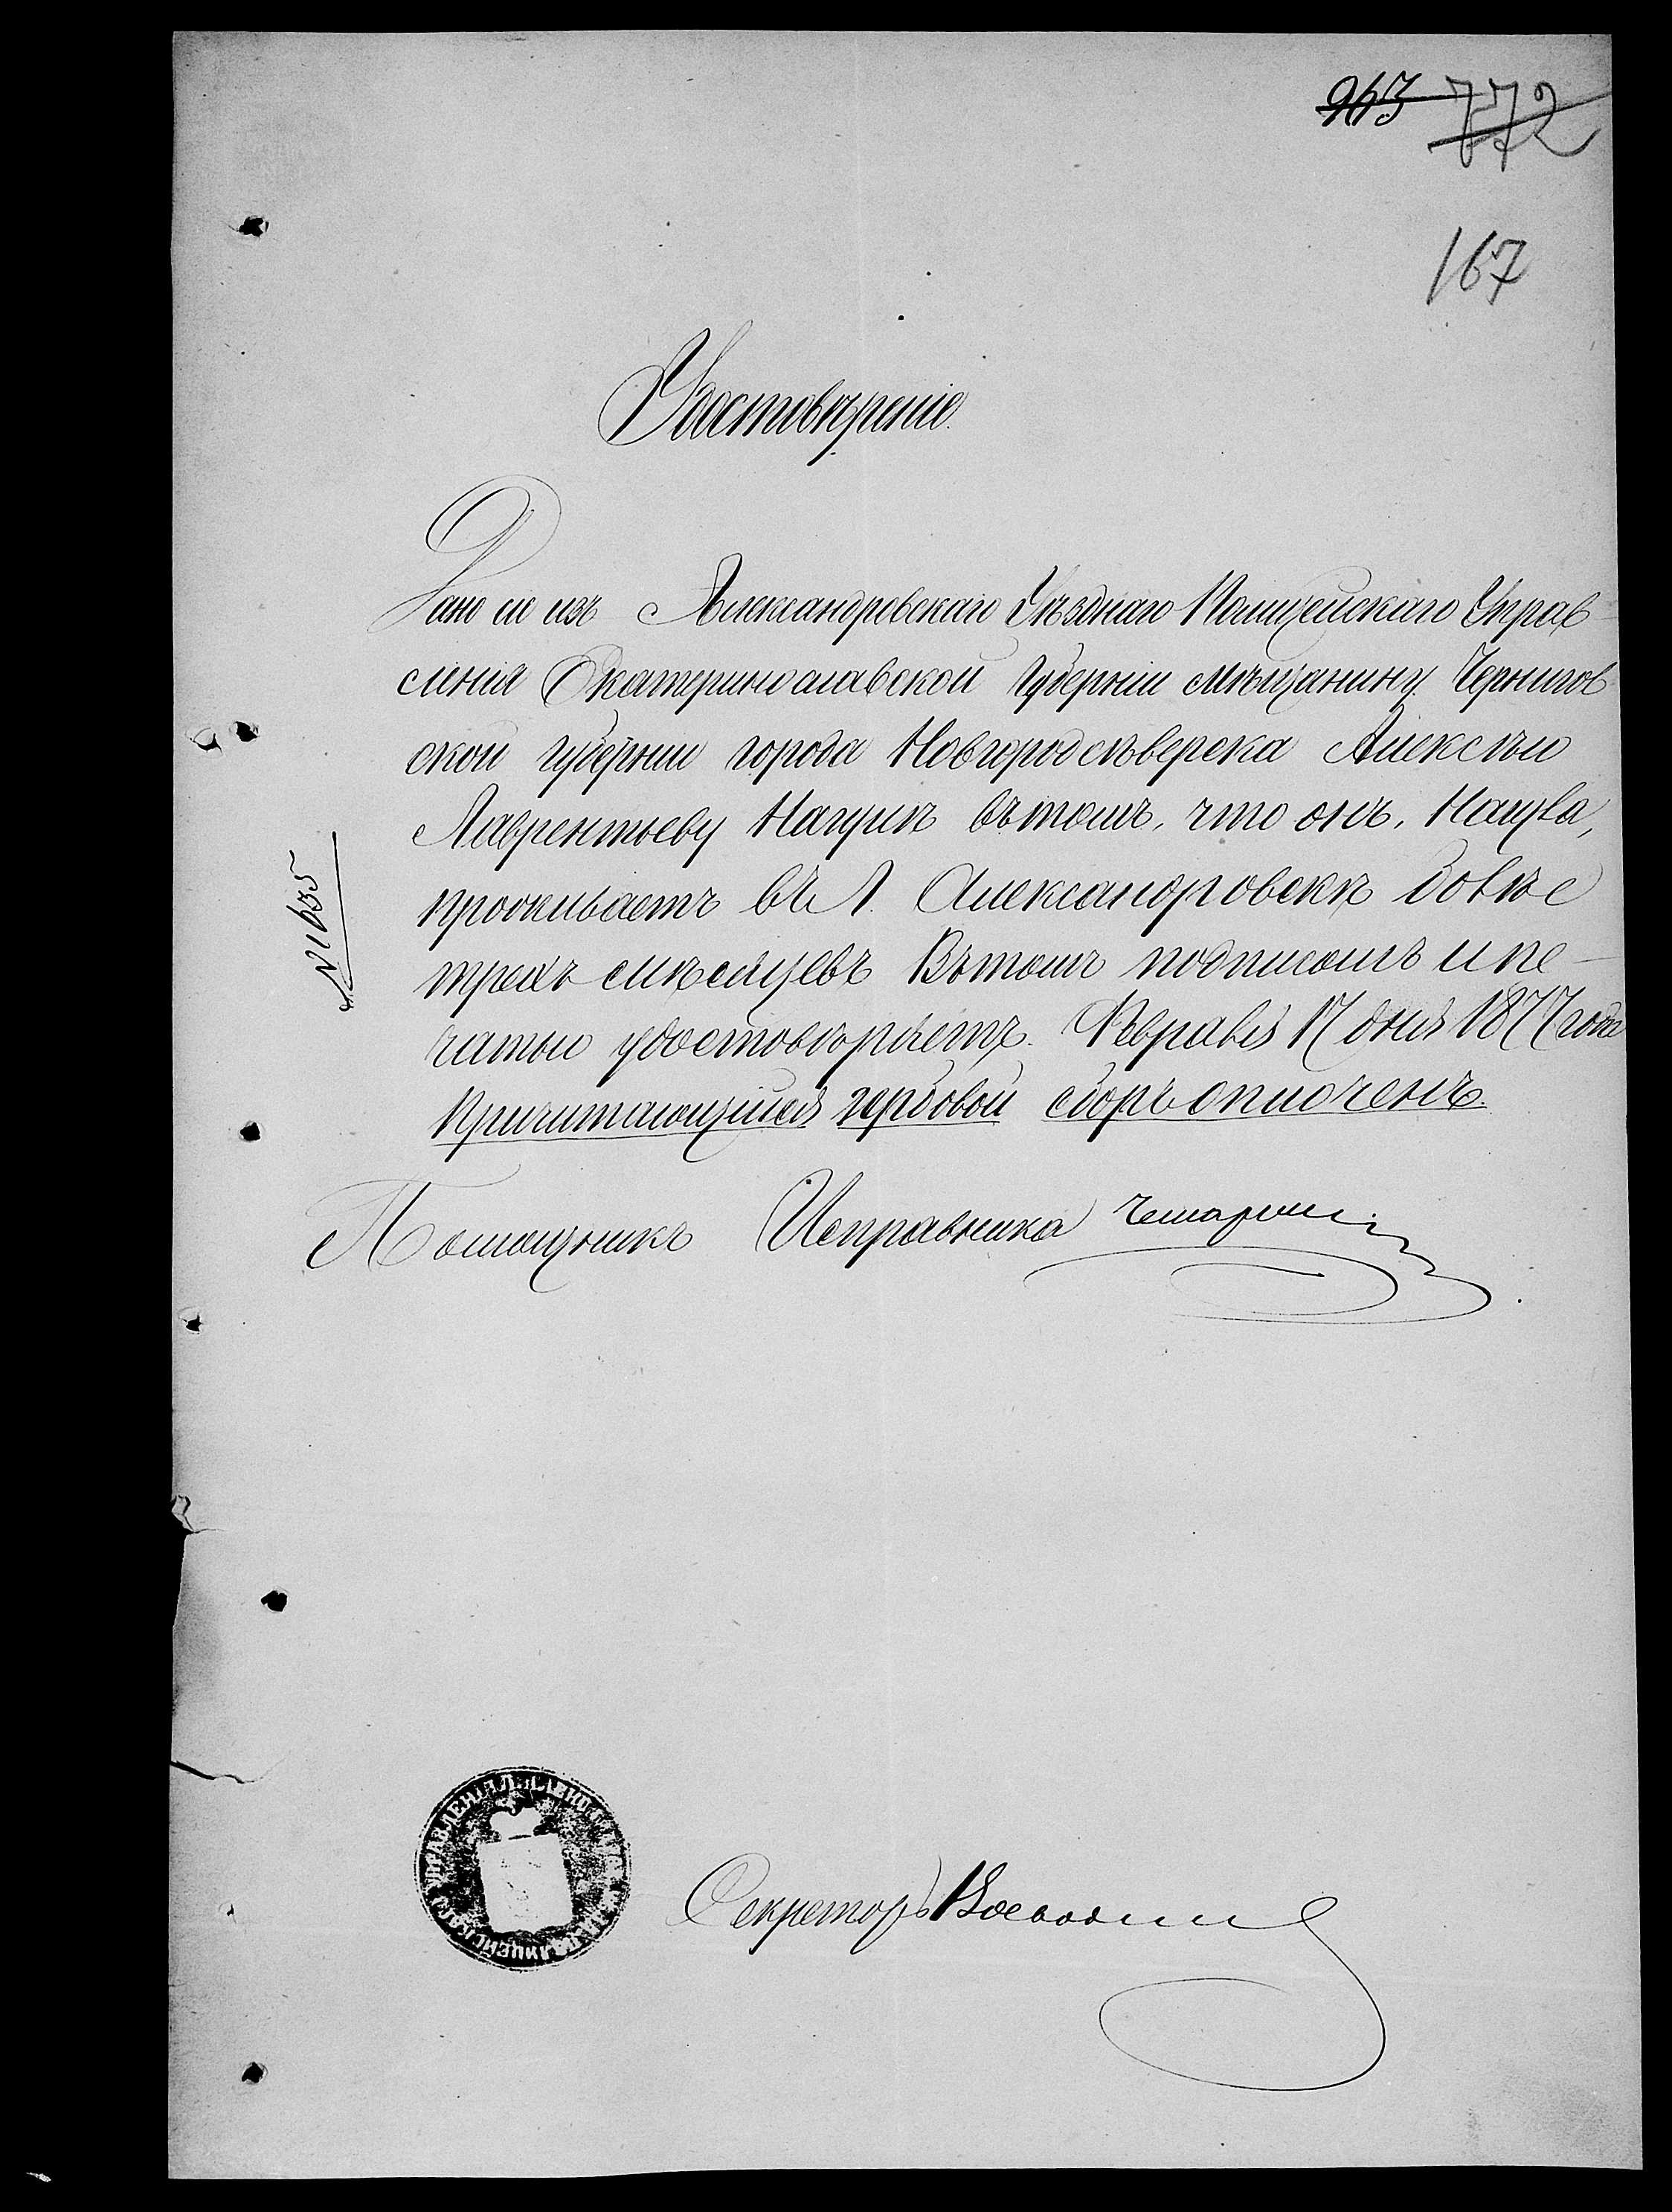 263 772
167
Удостовѣреніе.
Дано сіе изъ Александровскаго Уѣзднаго Полицейскаго Управ-
ленія Екатеринославской Губерніи мѣщанину Чернигов
ской губерніи города Новгородсѣверска Алексѣю
Лаврентьеву Нацукѣ въ томъ, что онъ, Нацука,
проживаетъ въ г. Александровскѣ болѣе
трехъ мѣсяцевъ Въ томъ подписомъ и пе-
чатью удостовѣряетъ. Февраля 17 дня 1877 года
Причитающійся гербовой сборъ оплоченъ.
№ 1635
Помощникъ Исправника
Секретарь